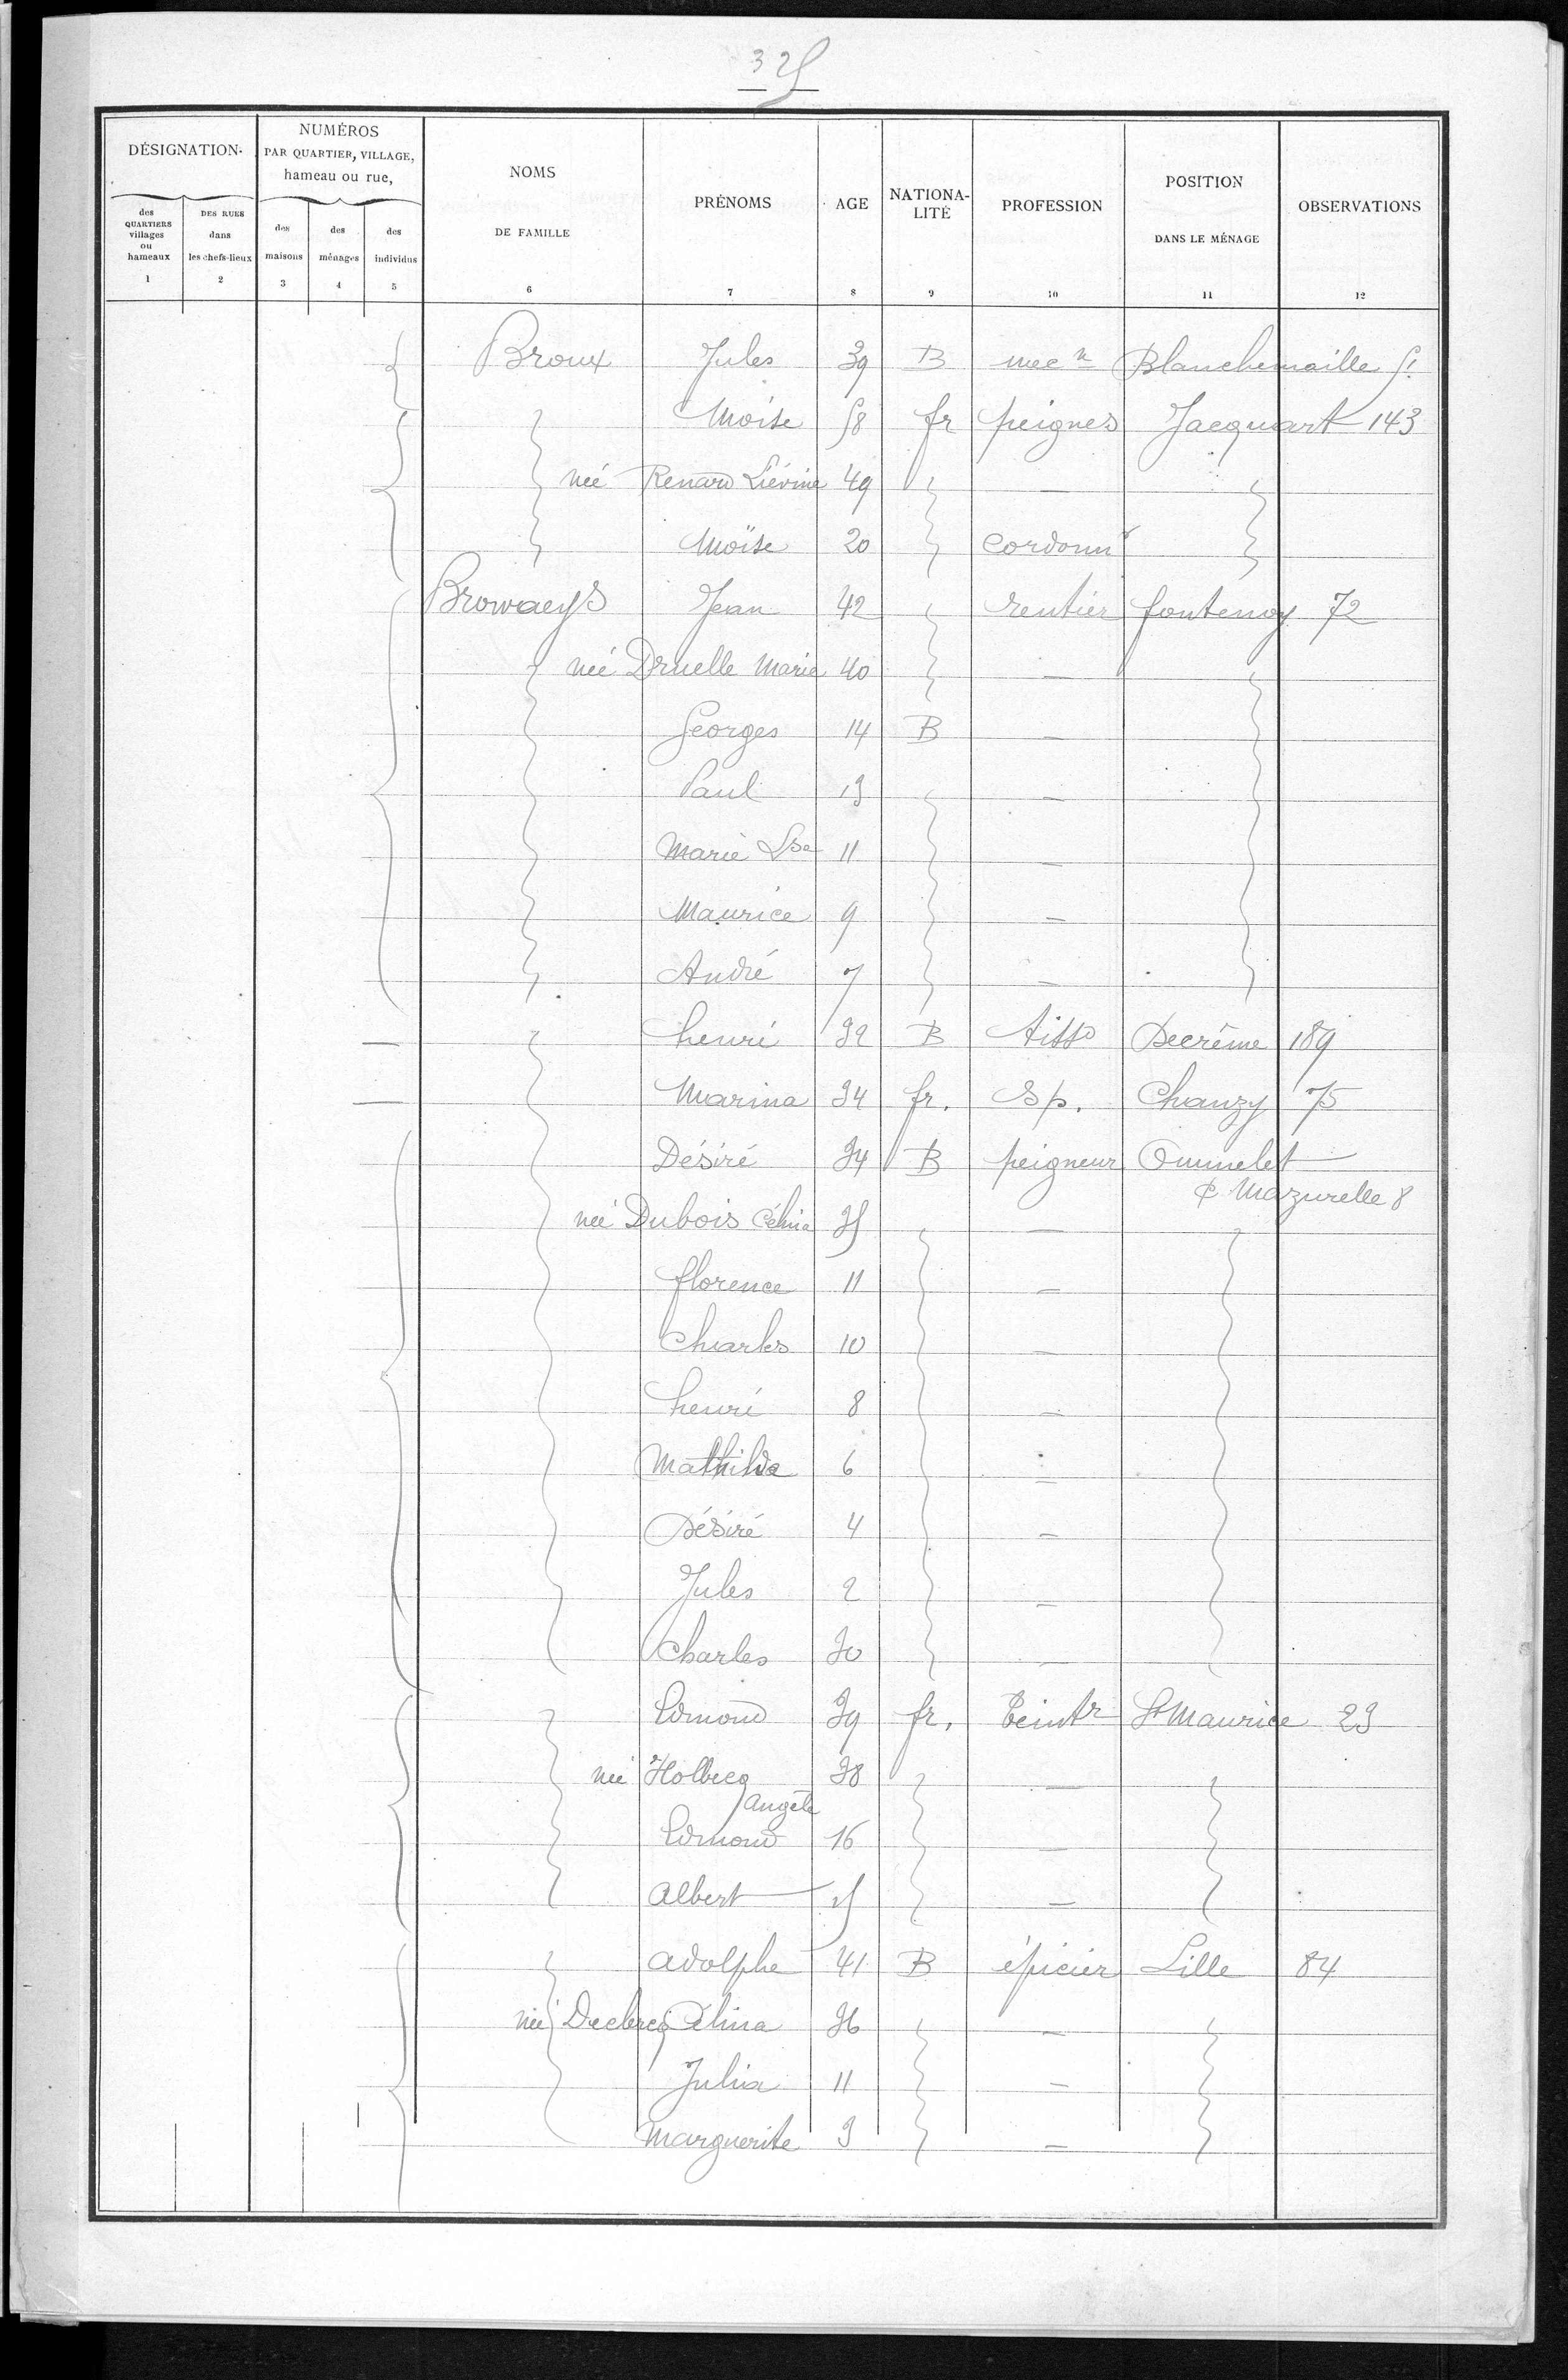 325
DÉSIGNATION
NUMÉROS
PAR QUARTIER, VILLAGE,
hameau ou rue,
NOMS
DE FAMILLE
PRÉNOMS
AGE
NATIONA-
LITÉ
PROFESSION
POSITION
DANS LE MÉNAGE
OBSERVATIONS
des
QUARTIERS
villages
ou
hameaux
DES RUES
dans
les chefs-lieux
des
maisons
des
ménages
des
individus
1 2 3 4 5 6 7 8 9 10 11 12
Broux Jules 39 B mecn Blanchemaille 51
Moïse 58 fr peignes Jacquart 143
née Renard Liévine 49 —
Moïse 20 Cordonnr
Browaeys Jean 42 rentier fontenoy 72
née Druelle Marie 40 —
Georges 14 B —
Paul 13 —
Marie Lse 11 —
Maurice 9 —
André 7 —
henri 32 B tissd Decrême 189
Marina 34 fr. Sp. Chanzy 75
Désiré 34 B peigneur Ommelet
c Mazurelle 8
née Dubois Célina 35 —
florence 11 —
Charles 10 —
henri 8 —
Mathilde 6 —
Désiré 4 —
Jules 2 —
Charles 30 —
Edmond 39 fr. teintr St Maurice 23
née Holbecq 38 —
Angèle
Edmond 16 —
Albert 15 —
Adolphe 41 B épicier Lille 84
née Declercq Célina 36 —
Julia 11 —
Marguerite 3 —